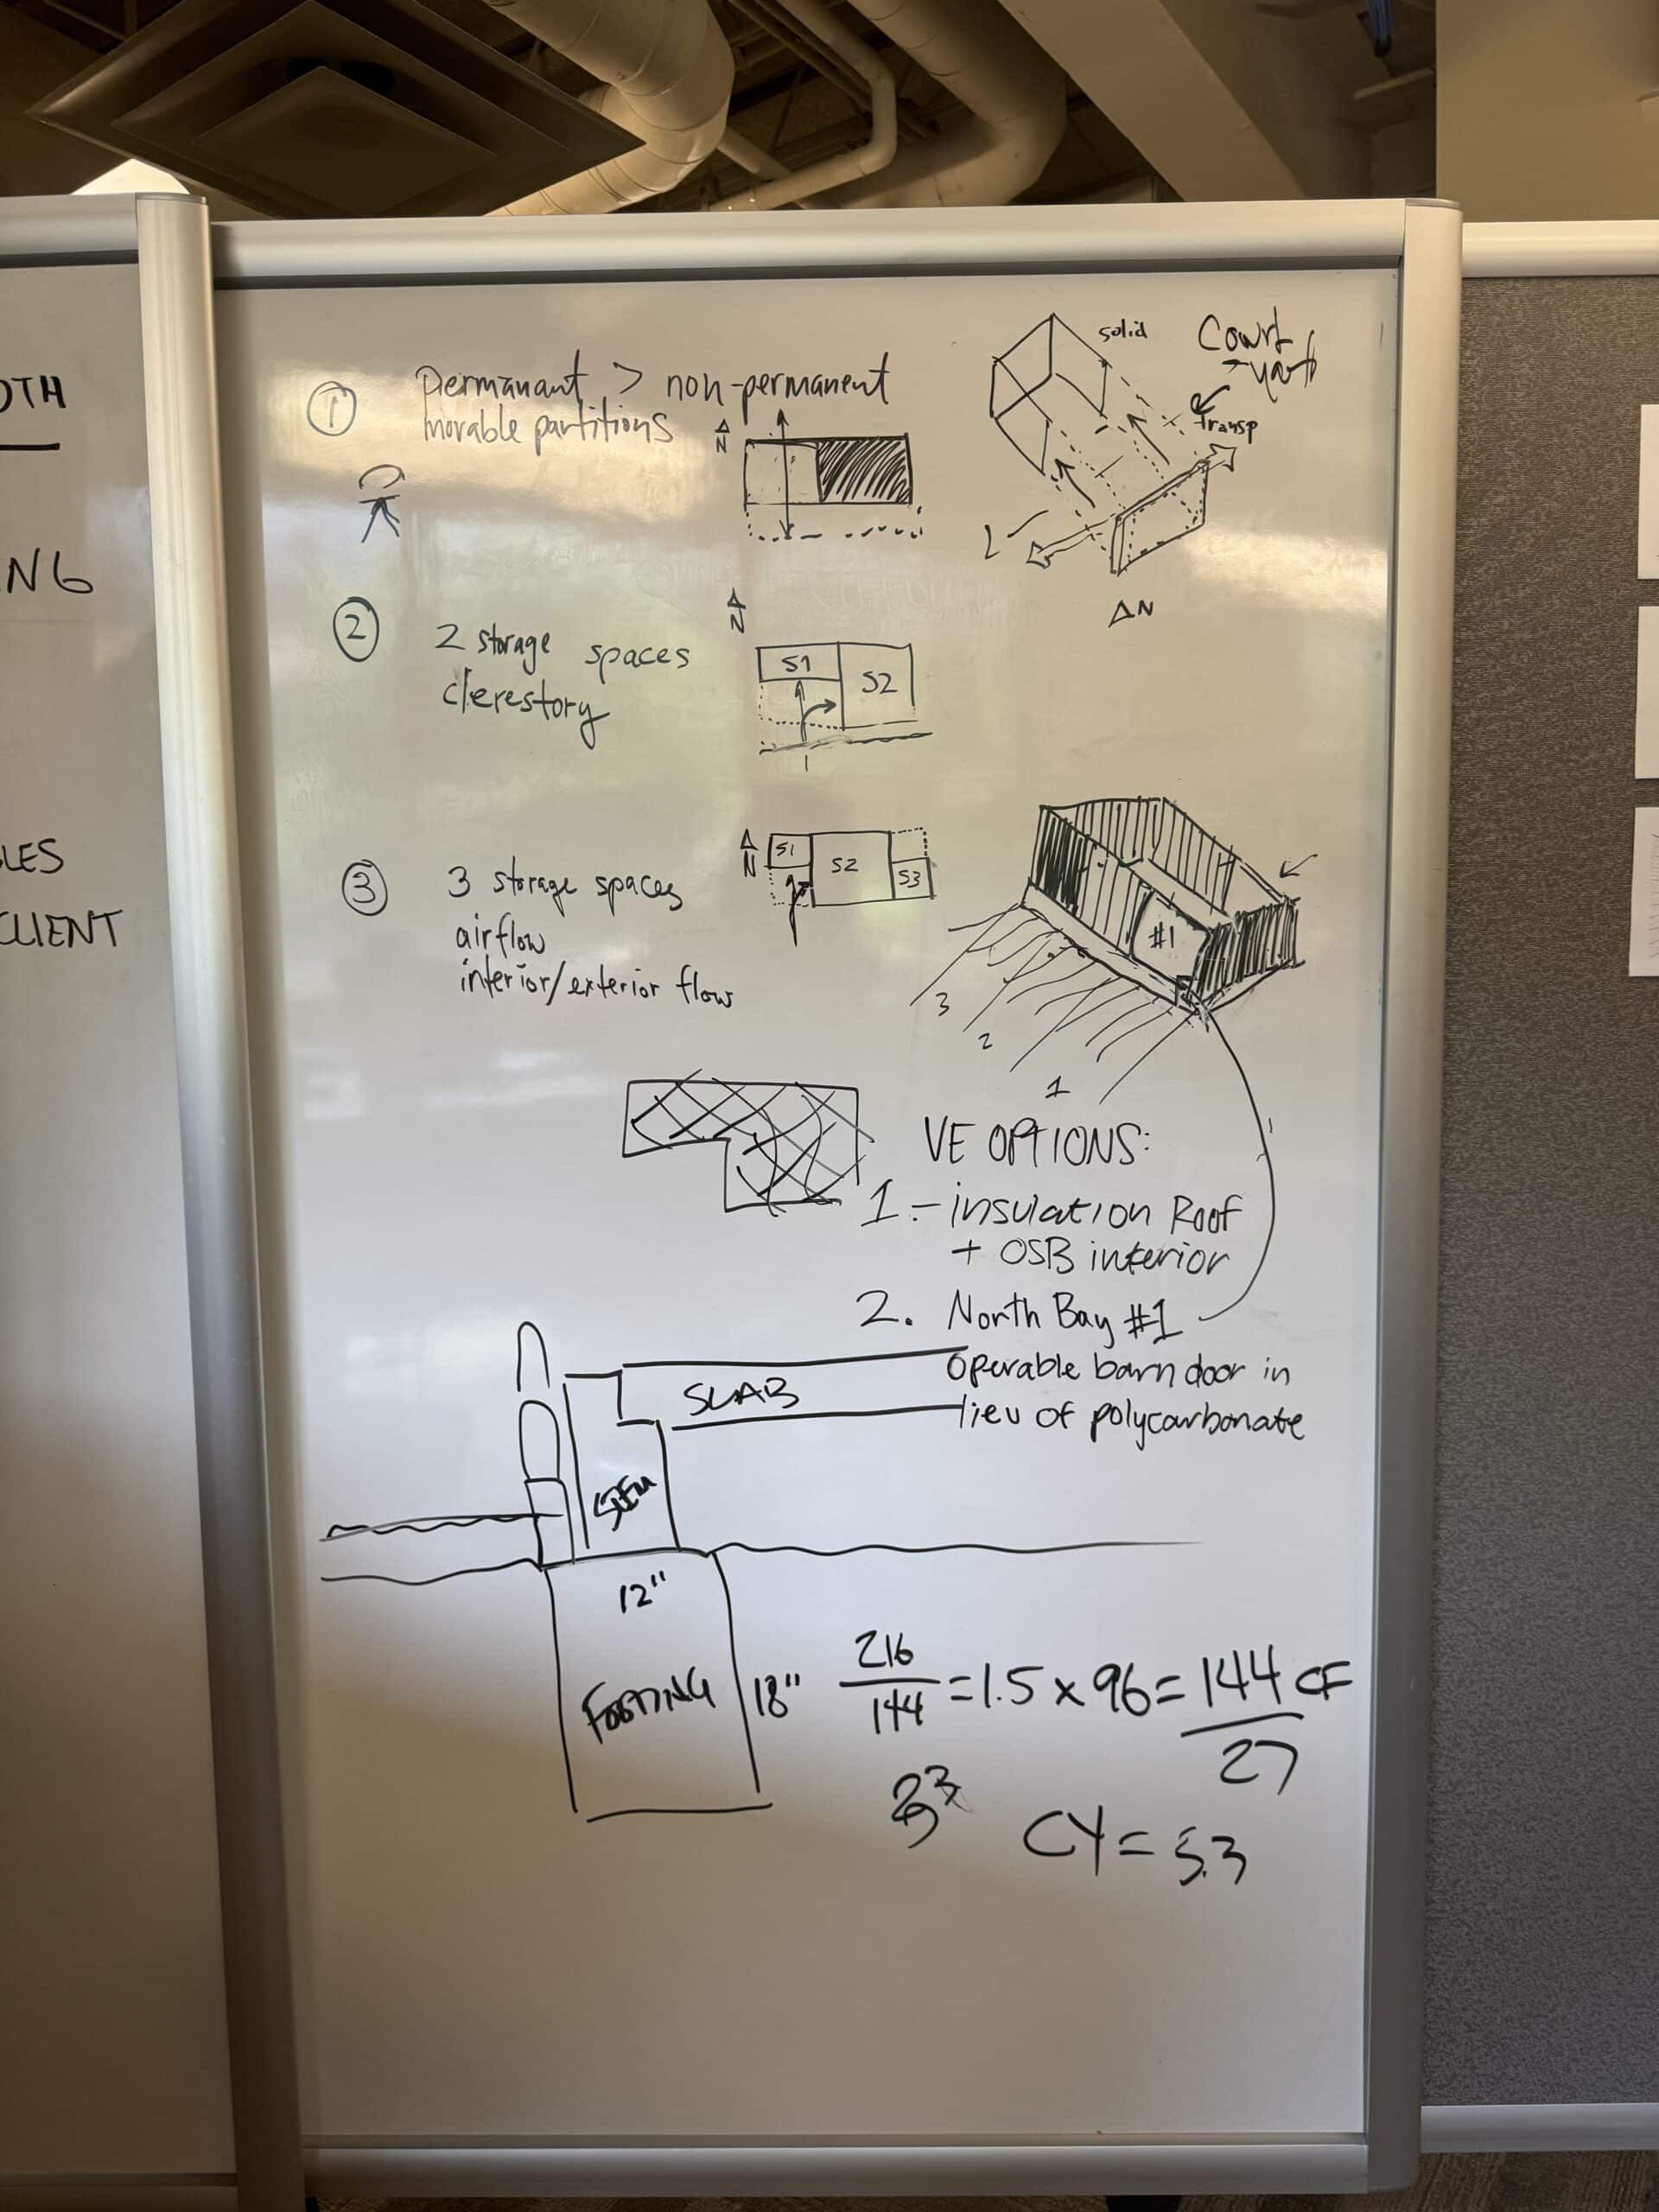 OTH
NG
LES
CLIENT
① Permanant > non-permanent
movable partitions
N
solid
Court
-yard
transp
N
② 2 storage spaces
clerestory
N
S1
S2
③ 3 storage spaces
airflow
interior/exterior flow
N
S1
S2
S3
#1
3
2
1
VE OPTIONS:
1.- insulation Roof
+ OSB interior
2. North Bay #1
Operable barn door in
lieu of polycarbonate
SLAB
STEM
12"
FOOTING
18"
216
144
=1.5 x 96 = 144 CF
27
CY = 5.3